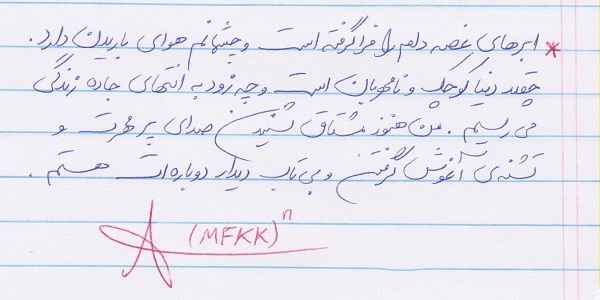 * ابرهای غصه دلم را فرا گرفته است و چشمانم هوای باریدن دارد.
چقدر دنیا کوچک و نامهربان است و چه زود به انتهای جاده زندگی
می رسیم. من هنوز مشتاق شنیدن صدای پر مهرت و
تشنه ی آغوش گرفتن و بی تاب دیدار دوباره ات هستم.
(MFKK)ⁿ